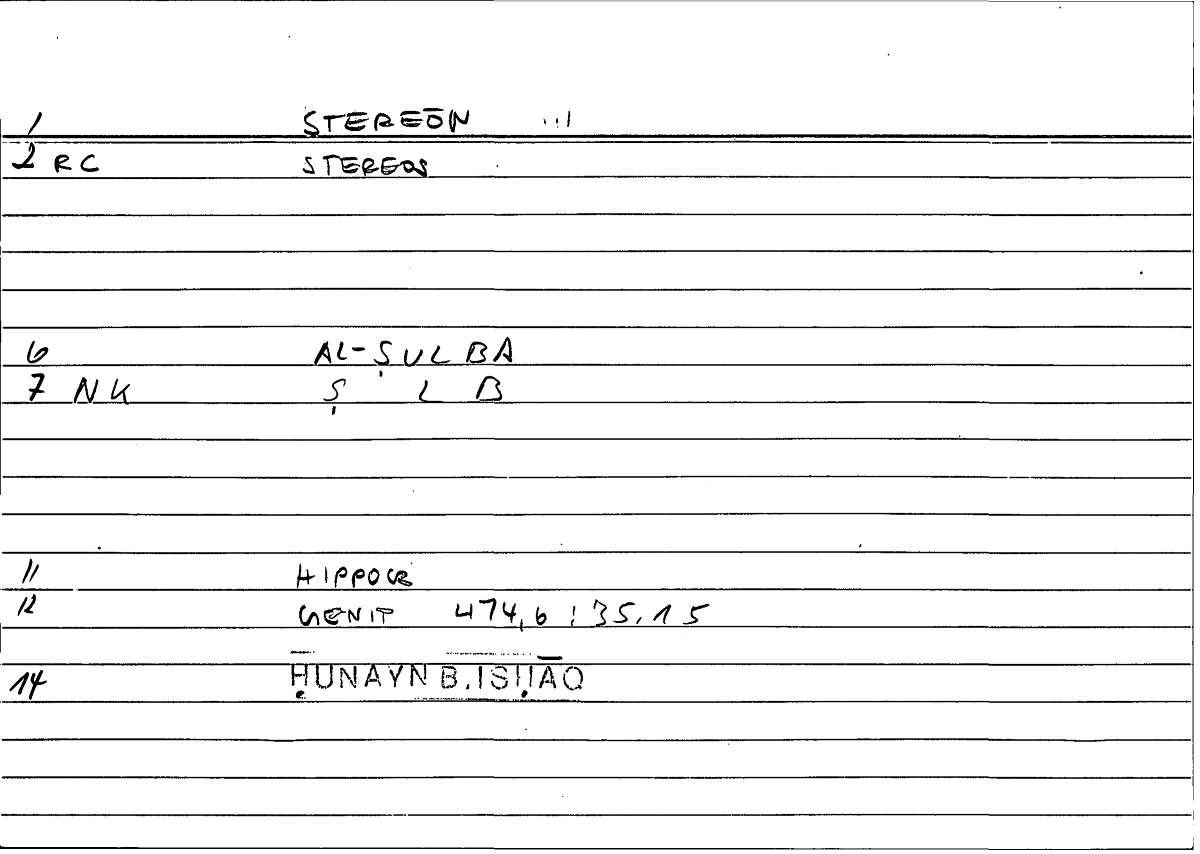 1 STEREŌN
2 RC STEREOS
6 AL-ṢULBA
7 NK Ṣ L B
11 HIPPOCR
12 GENIT 474,6 : 35.15
14 ḤUNAYN B.ISḤĀQ